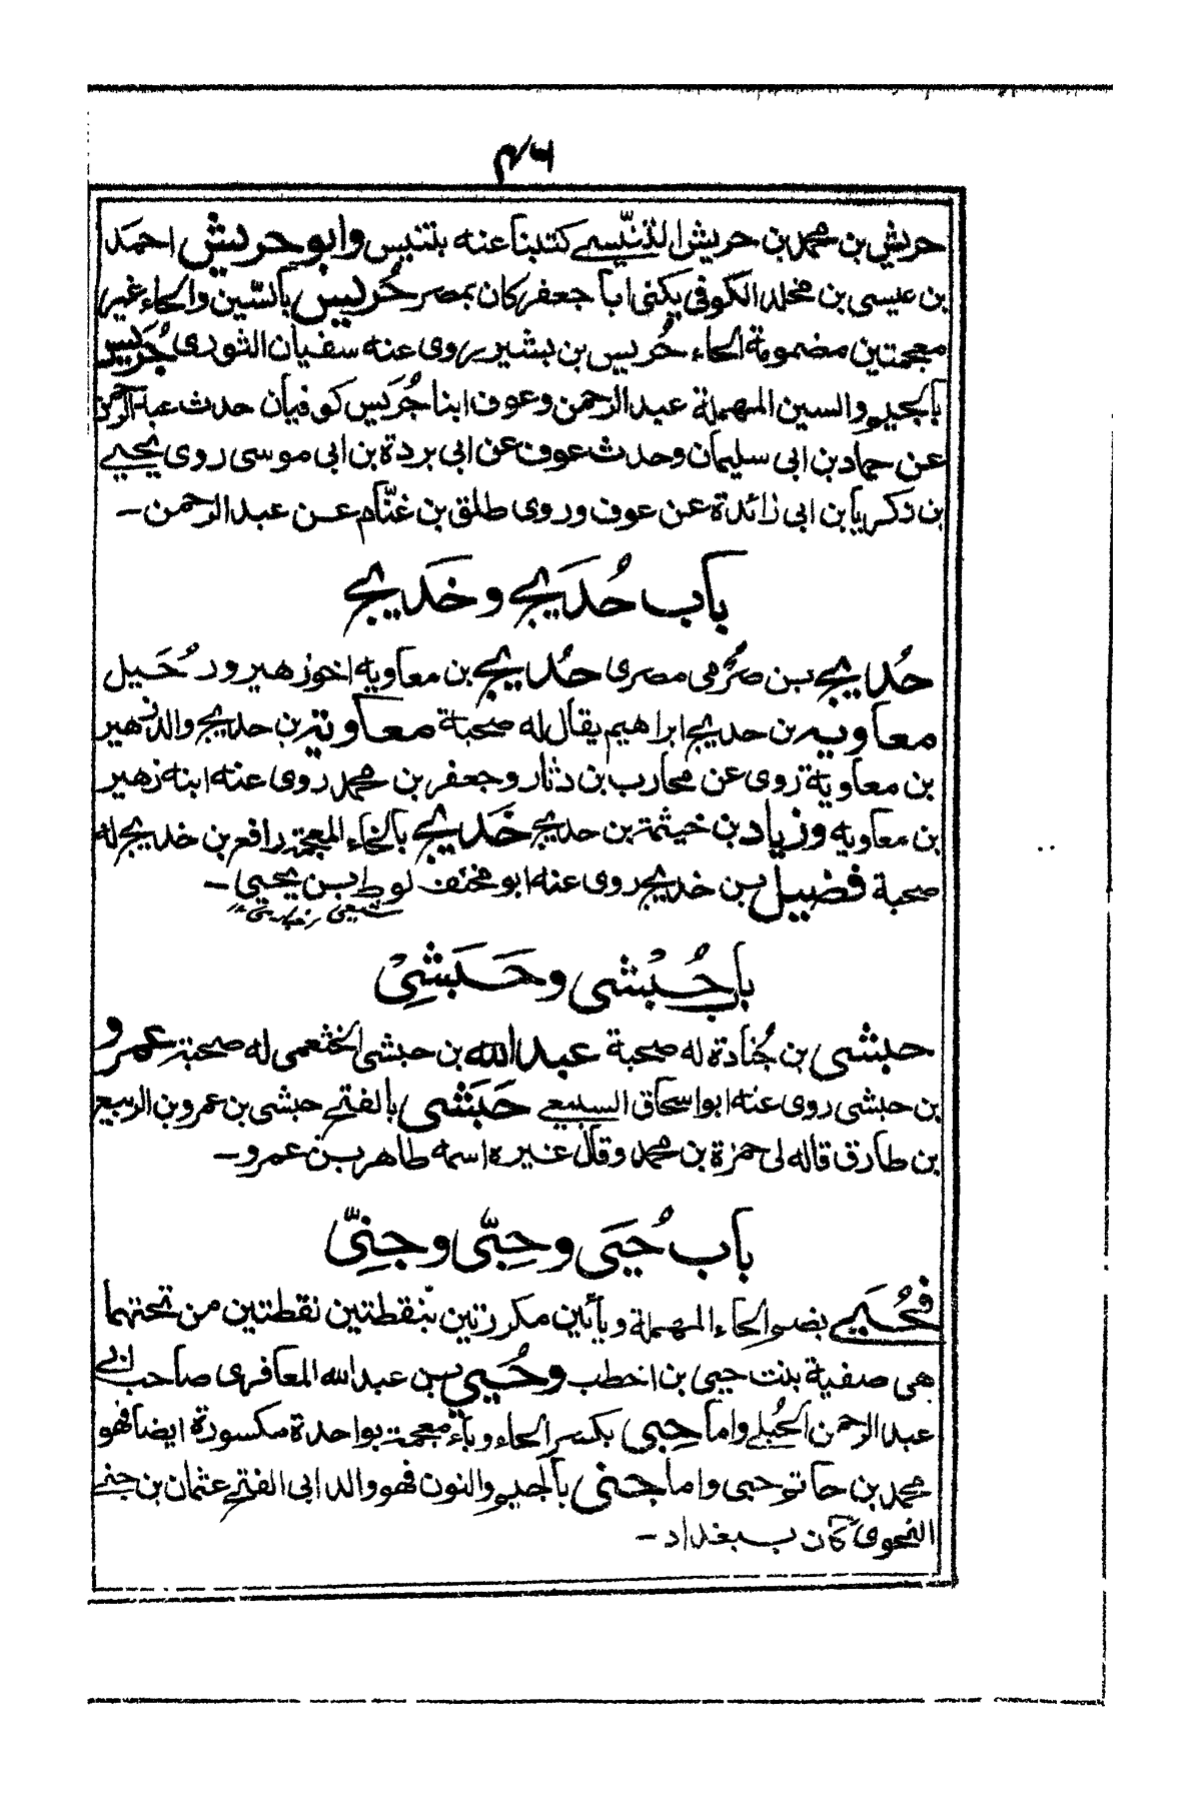 ٤٦
حريش بن محمد بن حريش التنيسي كتبنا عنه بتنيس وابو حريش احمد
بن عيسى بن مخلد الكوفى يكنى ابا جعفر كان بمصر حُريس بالسّين والحاء غير
معجمتين مضمومة الحاء حُريس بن بشير روى عنه سفيان الثورى جُرَيس
بالجيم والسين المهملة عبد الرحمن وعوف ابنا جُرَيس كوفيان حدث عبد الرحمن
عن حماد بن ابى سليمان وحدث عوف عن ابى بردة بن ابى موسى روى يحيى
بن زكريا بن ابى زائدة عن عوف وروى طلق بن غنّام عن عبد الرحمن ــ
باب حُدَيج و خَديج
حُديج بن صُرمى مصرى حُديج بن معاويه اخو زهير ورُحَيل
معاويه بن حديج ابراهيم يقال له صحبة معاوية بن حديج والد زهير
بن معاوية روى عن محارب بن دثار وجعفر بن محمد روى عنه ابنه زهير
بن معاويه وزياد بن خيثمة بن حديج خَديج بالخاء المعجمة رافع بن خديج له
صحبة فضيل بن خديج روى عنه ابو مخنف لوط بن يحيى ــ
شيعى
باب حُبْشى وحَبَشِىْ
حبشى بن جُنادة له صحبة عبد الله بن حبشى الخثعمى له صحبة عمرو
بن حبشى روى عنه ابو اسحاق السبيعى حَبَشى بالفتح حبشى بن عمرو بن الربيع
بن طارق قاله لى حمزة بن محمد وقال غيره اسمه طاهر بن عمرو ــ
باب حُيَى وحِبّى وجِنِىّ
فحُيَى بضم الحاء المهملة ويائين مكررتين بنقطتين نقطتين من تحتهما
هى صفية بنت حيى بن اخطب وحُيي بن عبد الله المعافرى صاحب ابى
عبد الرحمن الحُبلى واما حِبى بكسر الحاء وباء معجمة بواحدة مكسورة ايضا فهو
محمد بن حاتم حبى واما جنى بالجيم والنون فهو والد ابى الفتح عثمان بن جنى
النحوى كان ببغداد ــ